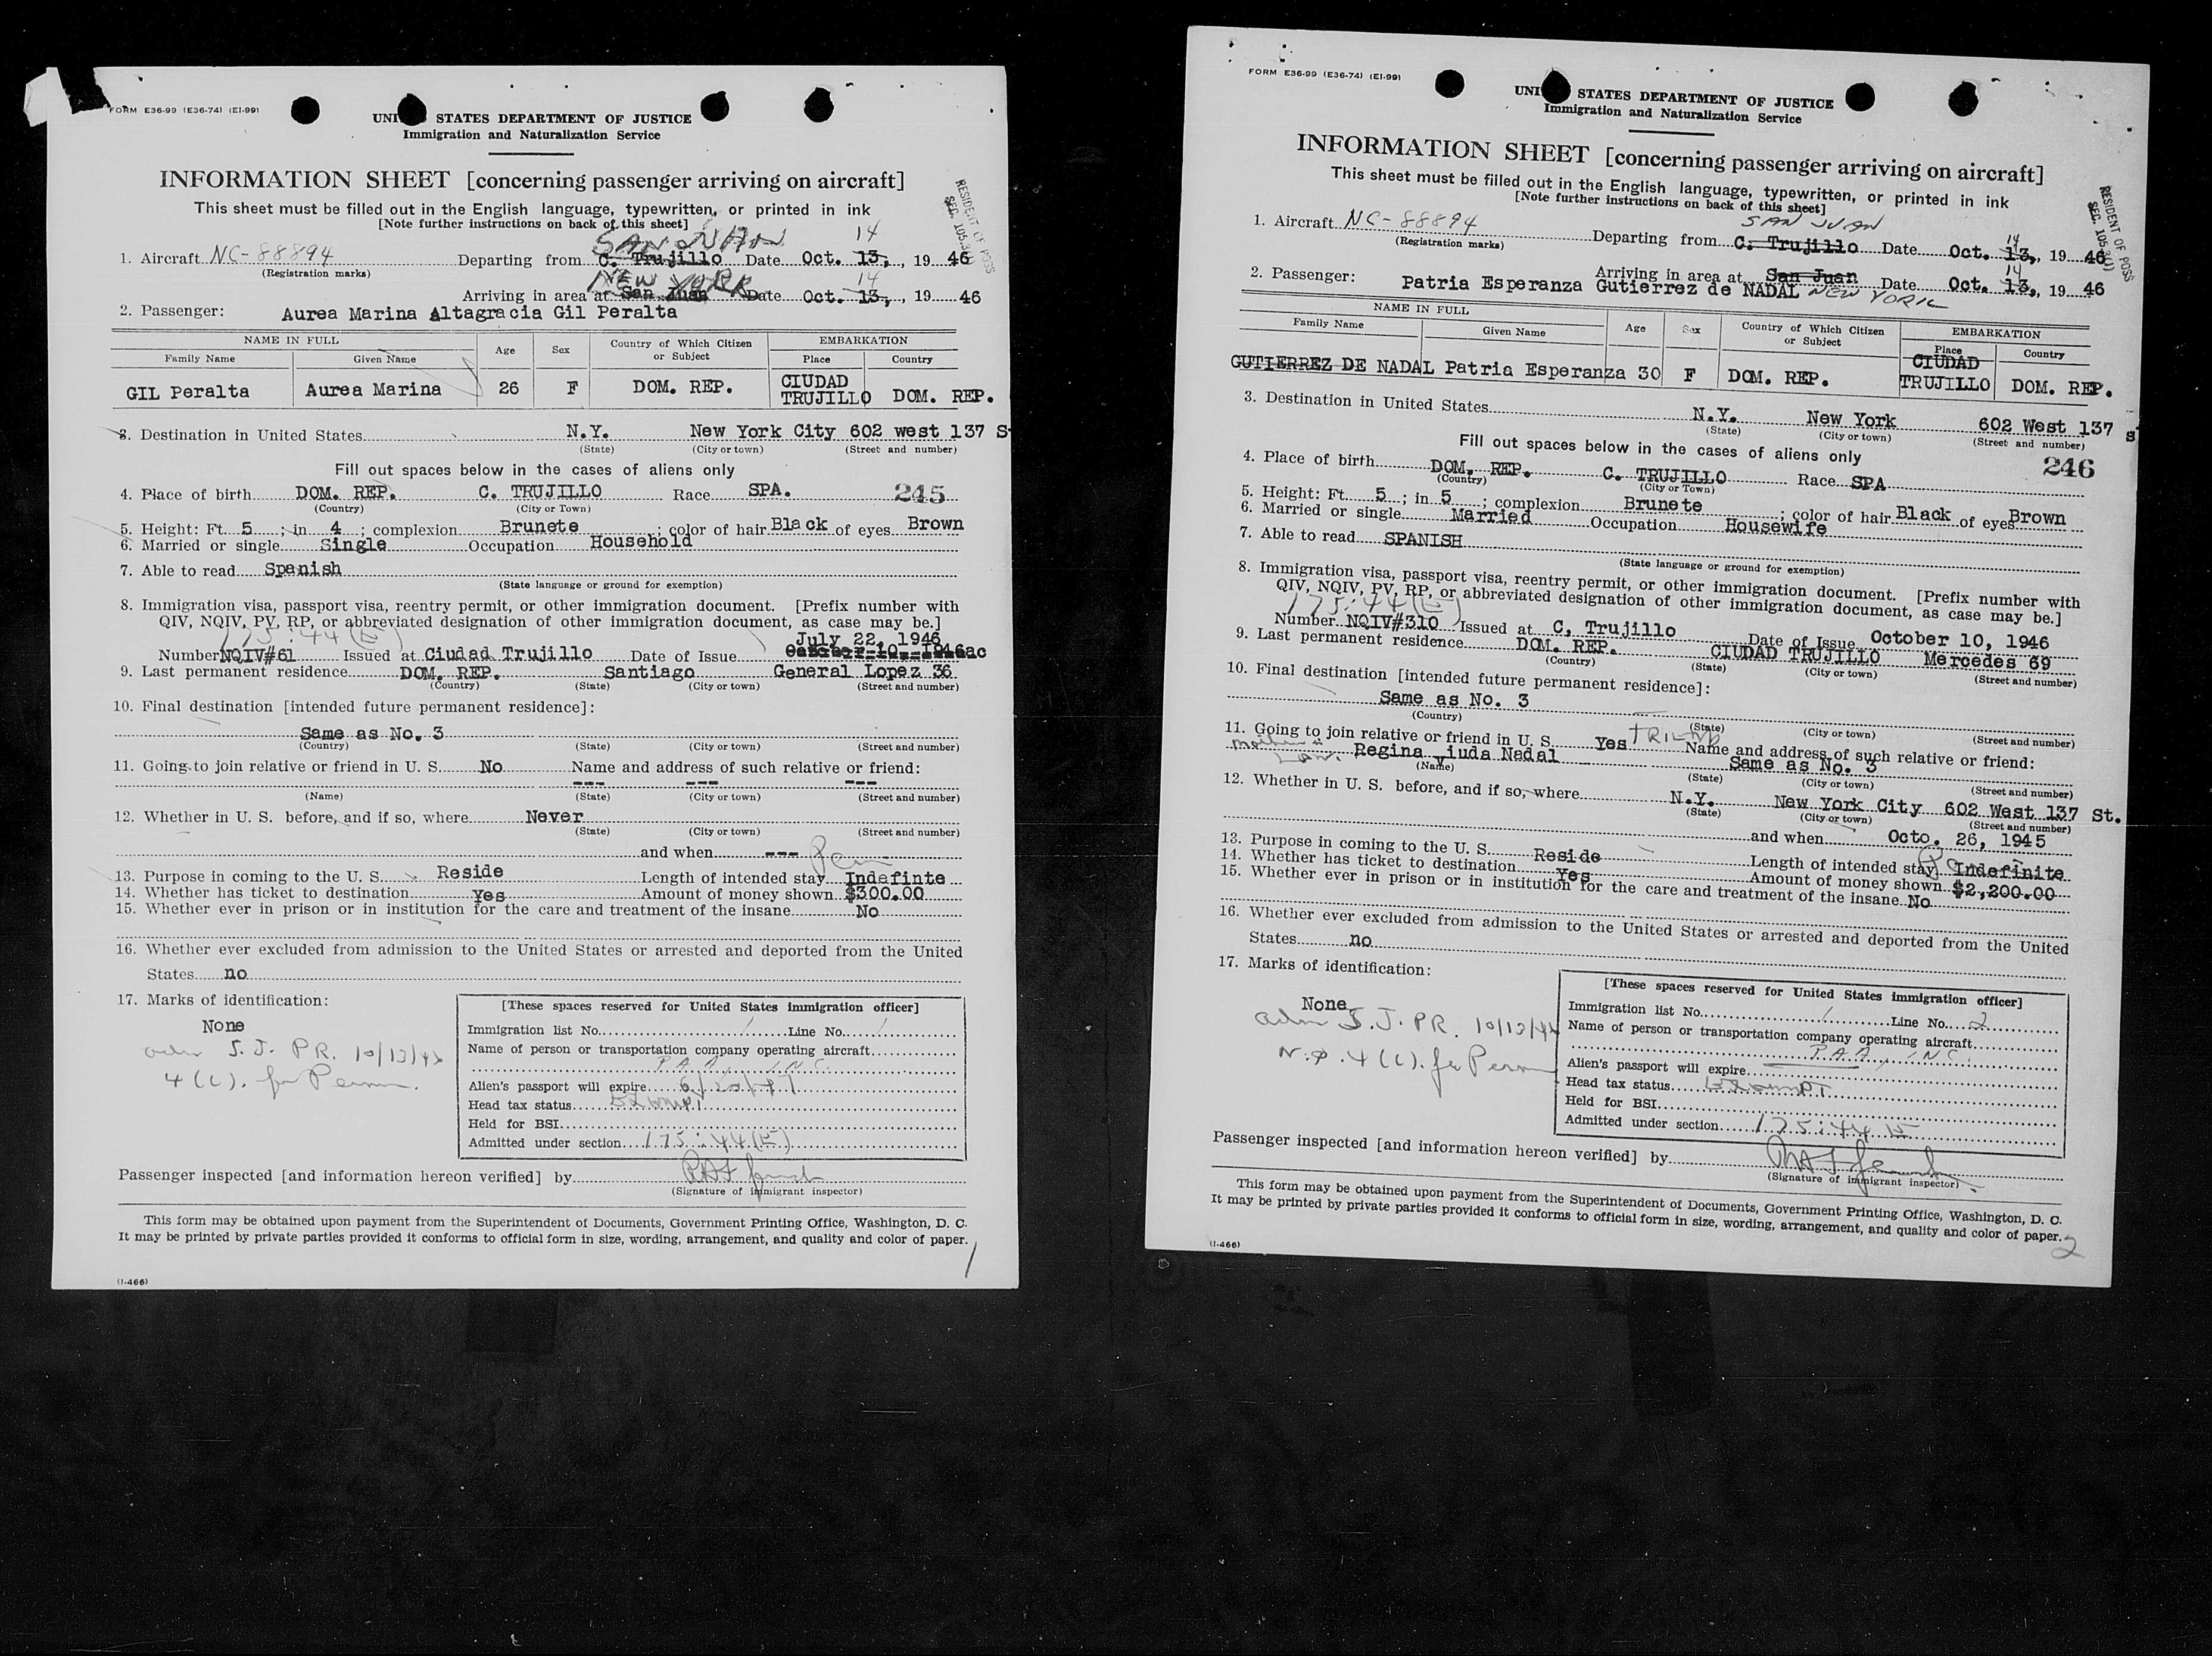 FORM E36-99 (E36-74) (EI-99)
UNI STATES DEPARTMENT OF JUSTICE
Immigration and Naturalization Service
INFORMATION SHEET [concerning passenger arriving on aircraft]
This sheet must be filled out in the English language, typewritten, or printed in ink
[Note further instructions on back of this sheet]
RESIDENT OF POSS
SEC. 105.3
SAN JUAN 14
1. Aircraft NC-88894 Departing from C. Trujillo Date Oct. 13, , 19 46
(Registration marks)
NEW YORK 14
Arriving in area at San Juan Date Oct. 13, , 19 46
2. Passenger: Aurea Marina Altagracia Gil Peralta
NAME IN FULL Age Sex Country of Which Citizen or Subject EMBARKATION
Family Name Given Name Place Country
GIL Peralta Aurea Marina 26 F DOM. REP. CIUDAD TRUJILLO DOM. REP.
3. Destination in United States N.Y. New York City 602 west 137 S
(State) (City or town) (Street and number)
Fill out spaces below in the cases of aliens only
4. Place of birth DOM. REP. C. TRUJILLO Race SPA. 245
(Country) (City or Town)
5. Height: Ft. 5 ; in 4 ; complexion Brunete ; color of hair Black of eyes Brown
6. Married or single Single Occupation Household
7. Able to read Spanish
(State language or ground for exemption)
8. Immigration visa, passport visa, reentry permit, or other immigration document. [Prefix number with
QIV, NQIV, PV, RP, or abbreviated designation of other immigration document, as case may be.]
175:44(E) July 22, 1946
Number NQIV#61 Issued at Ciudad Trujillo Date of Issue October 10, 1946ac
9. Last permanent residence DOM. REP. Santiago General Lopez 36
(Country) (State) (City or town) (Street and number)
10. Final destination [intended future permanent residence]:
Same as No. 3
(Country) (State) (City or town) (Street and number)
11. Going to join relative or friend in U. S. No Name and address of such relative or friend:
--- --- ---
(Name) (State) (City or town) (Street and number)
12. Whether in U. S. before, and if so, where Never
(State) (City or town) (Street and number)
and when --- Perm
13. Purpose in coming to the U. S. Reside Length of intended stay Indefinte
14. Whether has ticket to destination Yes Amount of money shown $300.00
15. Whether ever in prison or in institution for the care and treatment of the insane No
16. Whether ever excluded from admission to the United States or arrested and deported from the United
States no
17. Marks of identification:
None
adm S.J. P.R. 10/13/46
4(c). for Perm.
[These spaces reserved for United States immigration officer]
Immigration list No. 1 Line No. 1
Name of person or transportation company operating aircraft
P.A.A., INC.
Alien's passport will expire
Head tax status Exempt
Held for BSI
Admitted under section 175:44(E)
Passenger inspected [and information hereon verified] by
(Signature of immigrant inspector)
This form may be obtained upon payment from the Superintendent of Documents, Government Printing Office, Washington, D. C.
It may be printed by private parties provided it conforms to official form in size, wording, arrangement, and quality and color of paper.
1
(I-466)
FORM E36-99 (E36-74) (EI-99)
UNI STATES DEPARTMENT OF JUSTICE
Immigration and Naturalization Service
INFORMATION SHEET [concerning passenger arriving on aircraft]
This sheet must be filled out in the English language, typewritten, or printed in ink
[Note further instructions on back of this sheet]
RESIDENT OF POSS
SEC. 105.3(1)
SAN JUAN 14
1. Aircraft NC-88894 Departing from C. Trujillo Date Oct. 13, , 19 46
(Registration marks)
14
Arriving in area at San Juan Date Oct. 13, , 19 46
2. Passenger: Patria Esperanza Gutierrez de NADAL NEW YORK
NAME IN FULL Age Sex Country of Which Citizen or Subject EMBARKATION
Family Name Given Name Place Country
GUTIERREZ DE NADAL Patria Esperanza 30 F DOM. REP. CIUDAD TRUJILLO DOM. REP.
3. Destination in United States N.Y. New York 602 West 137 s
(State) (City or town) (Street and number)
Fill out spaces below in the cases of aliens only
246
4. Place of birth DOM. REP. C. TRUJILLO Race SPA
(Country) (City or Town)
5. Height: Ft. 5 ; in 5 ; complexion Brunete ; color of hair Black of eyes Brown
6. Married or single Married Occupation Housewife
7. Able to read SPANISH
(State language or ground for exemption)
8. Immigration visa, passport visa, reentry permit, or other immigration document. [Prefix number with
QIV, NQIV, PV, RP, or abbreviated designation of other immigration document, as case may be.]
175:44(E)
Number NQIV#310 Issued at C, Trujillo Date of Issue October 10, 1946
9. Last permanent residence DOM. REP. CIUDAD TRUJILLO Mercedes 69
(Country) (State) (City or town) (Street and number)
10. Final destination [intended future permanent residence]:
Same as No. 3
(Country) (State) (City or town) (Street and number)
11. Going to join relative or friend in U. S. Yes Name and address of such relative or friend:
mother in law. Regina viuda Nadal Same as No. 3
(Name) (State) (City or town) (Street and number)
12. Whether in U. S. before, and if so, where N.Y. New York City 602 West 137 St.
(State) (City or town) (Street and number)
and when Octo. 26, 1945
13. Purpose in coming to the U. S. Reside Length of intended stay Indefinite
14. Whether has ticket to destination Yes Amount of money shown $2,200.00
15. Whether ever in prison or in institution for the care and treatment of the insane No
16. Whether ever excluded from admission to the United States or arrested and deported from the United
States no
17. Marks of identification:
None
adm S.J. P.R. 10/13/46
4(c). for Perm
[These spaces reserved for United States immigration officer]
Immigration list No. 1 Line No. 2
Name of person or transportation company operating aircraft
P.A.A., INC.
Alien's passport will expire
Head tax status Exempt
Held for BSI
Admitted under section 175:44 E
Passenger inspected [and information hereon verified] by
(Signature of immigrant inspector)
This form may be obtained upon payment from the Superintendent of Documents, Government Printing Office, Washington, D. C.
It may be printed by private parties provided it conforms to official form in size, wording, arrangement, and quality and color of paper.
2
(I-466)